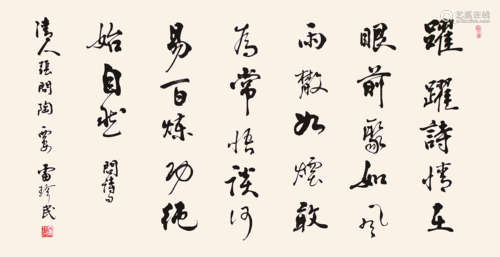 躍躍詩情在
眼前聚如風
雨散如煙敢
為常悟談何
易百煉功純
始自然
清人張問陶 雷珍民